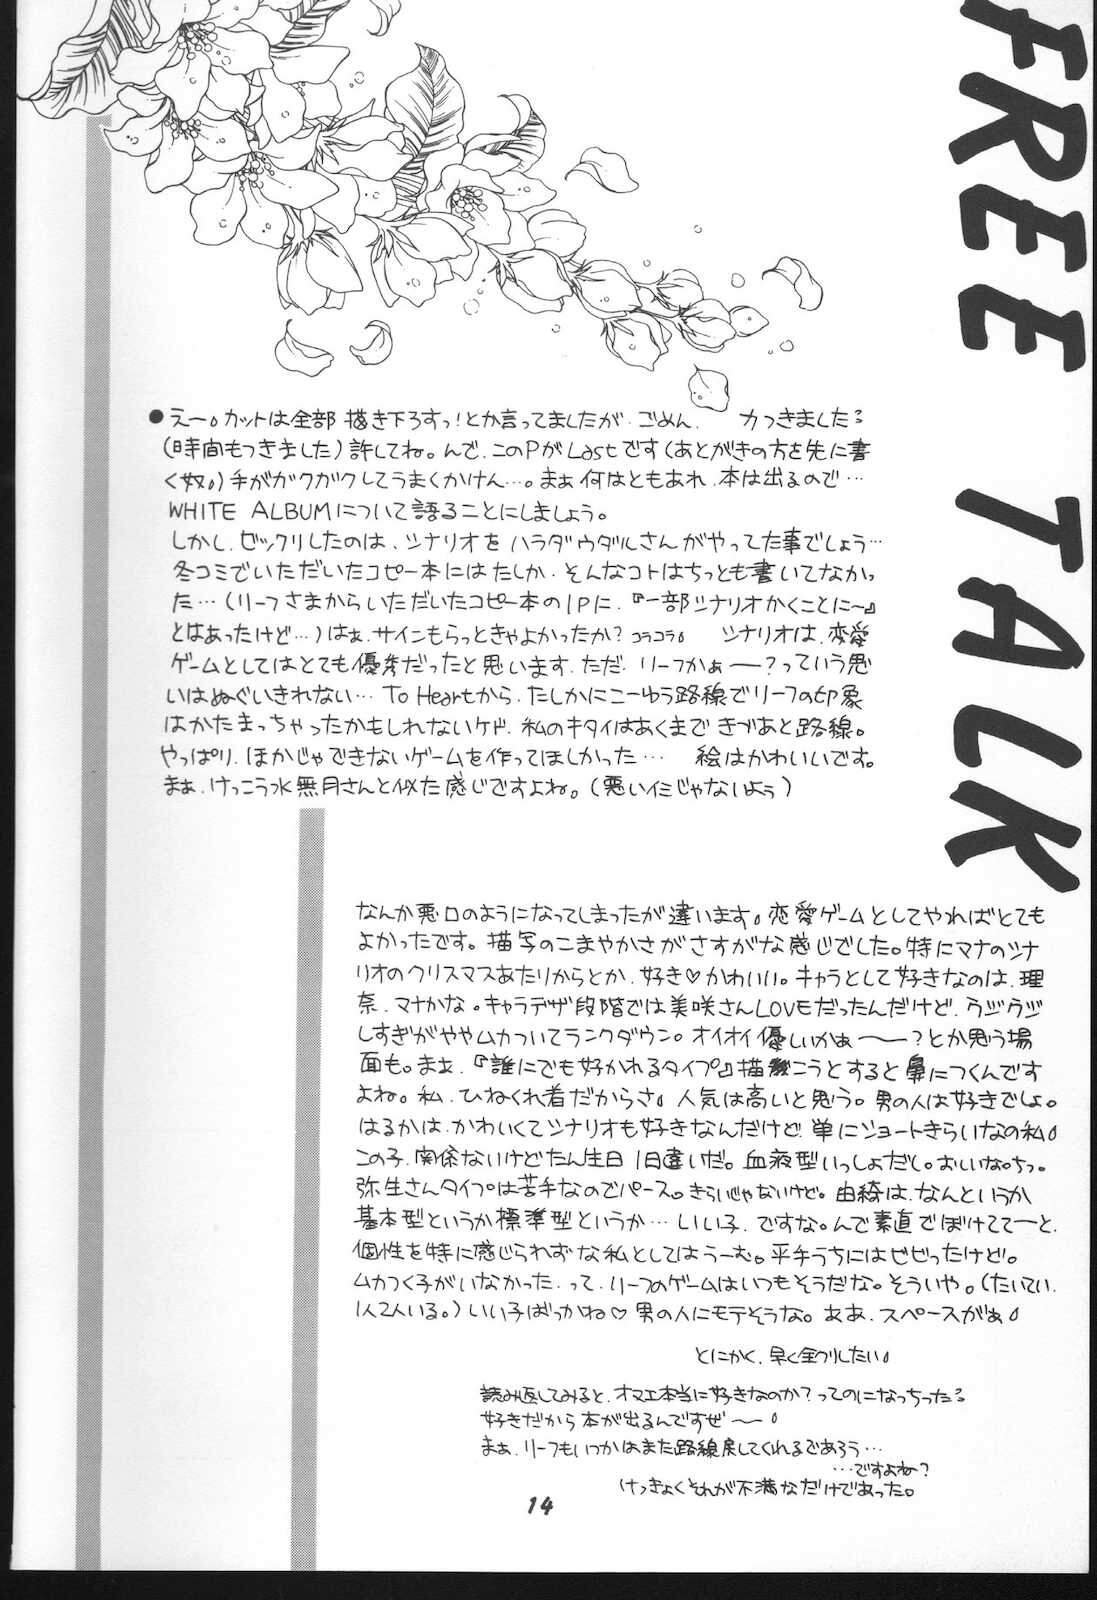 FREE TALK
●えー。カットは全部 描き下ろすっ!とか言ってましたが、ごめん、 力つきました
(時間もつきました)許してね。んで、このPがLastです(あとがきの方を先に書
く奴。)手がガクガクしてうまくかけん…。まぁ何はともあれ、本は出るので…
WHITE ALBUMについて語ることにしましょう。
しかし、ビックリしたのは、シナリオを ハラダウダルさんがやってた事でしょう…
冬コミでいただいたコピー本にはたしか、そんなコトはちっとも書いてなかっ
た…(リーフさまからいただいたコピー本の1Pに、『一部シナリオかくことに〜』
とはあったけど…)はぁ、サインもらっときゃよかったか?コラコラ。 シナリオは、恋愛
ゲームとしてはとても優秀だったと思います、ただ、リーフかぁー?っていう思
いはぬぐいきれない… To Heartから、たしかにこーゆう路線でリーフの印象
はかたまっちゃったかもしれないケド、私のキタイはあくまで きづあと路線。
やっぱり、ほかじゃできないゲームを作ってほしかった… 絵はかわいいです。
まぁ、けっこう水無月さんと似た感じですよね。(悪いイミじゃないよぅ)
なんか悪口のようになってしまったが違います。恋愛ゲームとしてやればとても
よかったです。描写のこまやかさがさすがな感じでした。特にマナのシナ
リオのクリスマスあたりからとか、好き♡かわいい。キャラとして好きなのは、理
奈、マナかな。キャラデザ段階では美咲さんLOVEだったんだけど、ウジウジ
しすぎがややムカついてランクダウン。オイオイ優しいかぁー?とか思う場
面も。まぁ、『誰にでも好かれるタイプ』描こうとすると鼻につくんです
よね。私、ひねくれ者だからさ。人気は高いと思う。男の人は好きでしょ。
はるかは、かわいくてシナリオも好きなんだけど、単にショートきらいなの私。
この子、関係ないけどたん生日1日違いだ。血液型いっしょだし。おしいなっちっ。
弥生さんタイプは苦手なのでパース。きらいじゃないけど。由綺は、なんというか
基本型というか標準型というか… いい子、ですな。んで素直でぼけててーと、
個性を特に感じられずな私としてはうーむ。平手うちにはビビったけど。
ムカつく子がいなかった、って、リーフのゲームはいつもそうだな。そういや。(たいてい、
1人2人いる。)いい子ばっかね♡男の人にモテそうな。ああ、スペースがぁ
とにかく、早く全クリしたい。
読み返してみると、オマエ本当に好きなのか?ってのになっちった
好きだから本が出るんですぜー
まぁ、リーフもいつかはまた路線戻してくれるであろう…
…ですよね?
けっきょくそれが不満なだけであった。
14